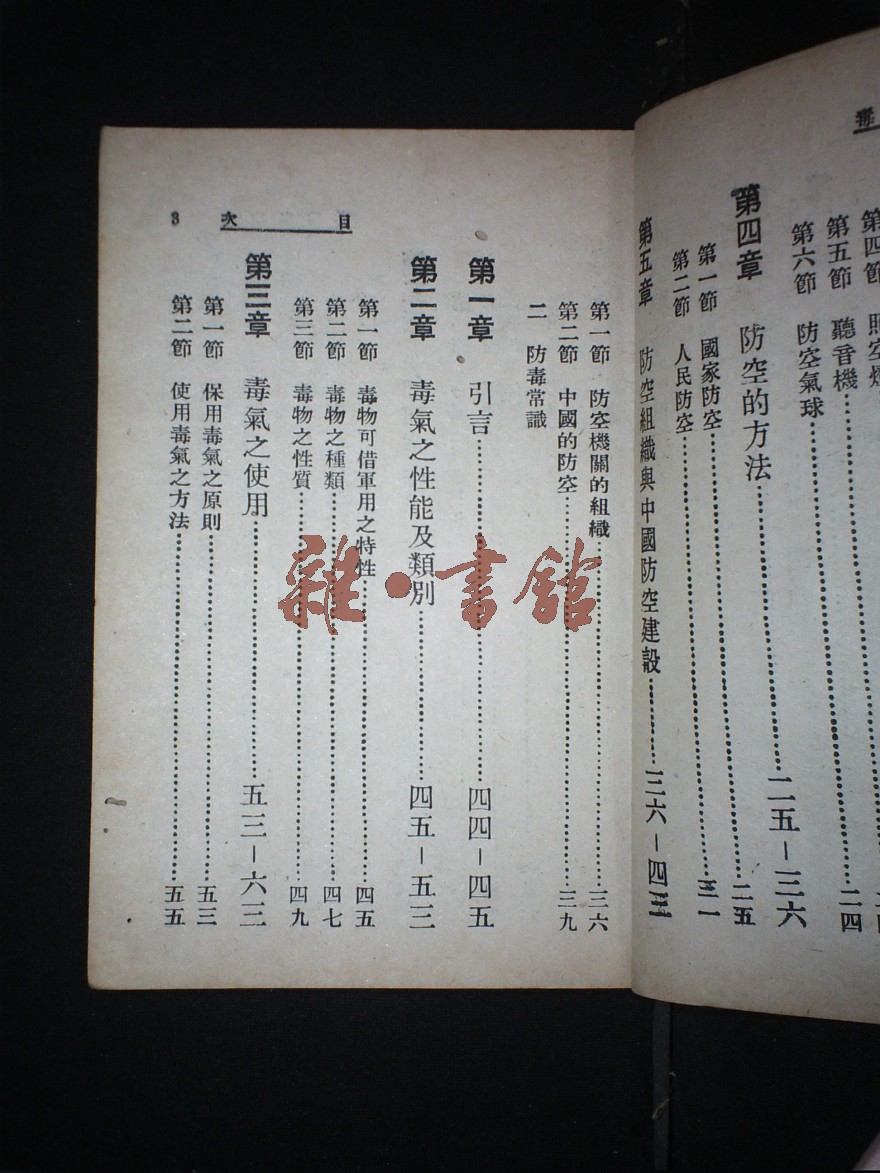 第四節 照空燈
第五節 聽音機……二四
第六節 防空氣球
第四章 防空的方法……二五－三六
第一節 國家防空……二五
第二節 人民防空……三一
第五章 防空組織與中國防空建設……三六－四三
目次 3
第一節 防空機關的組織……三六
第二節 中國的防空……三九
二 防毒常識
第一章 引言……四四－四五
第二章 毒氣之性能及類別……四五－五三
第一節 毒物可借軍用之特性……四五
第二節 毒物之種類……四七
第三節 毒物之性質……四九
第三章 毒氣之使用……五三－六三
第一節 保用毒氣之原則……五三
第二節 使用毒氣之方法……五五
雜·書館